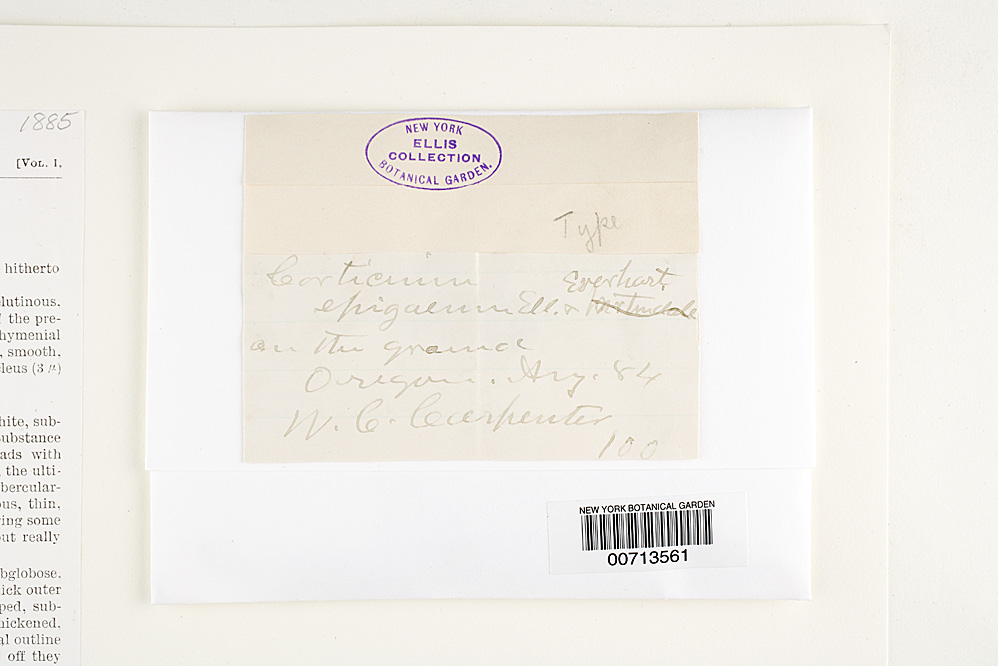 1885
[VOL. I.
hitherto
lutinous.
the pre-
hymenial
, smooth,
leus (3 µ)
hite, sub-
ubstance
ads with
the ulti-
bercular-
ous, thin,
ing some
out really
bglobose.
ick outer
ped, sub-
hickened,
al outline
off they
NEW YORK
ELLIS
COLLECTION
BOTANICAL GARDEN.
Type
Corticium Everhart.
epigaeum Ell. &
on the ground
Oregon. Aug. 84
W. C. Carpenter
100
NEW YORK BOTANICAL GARDEN
00713561